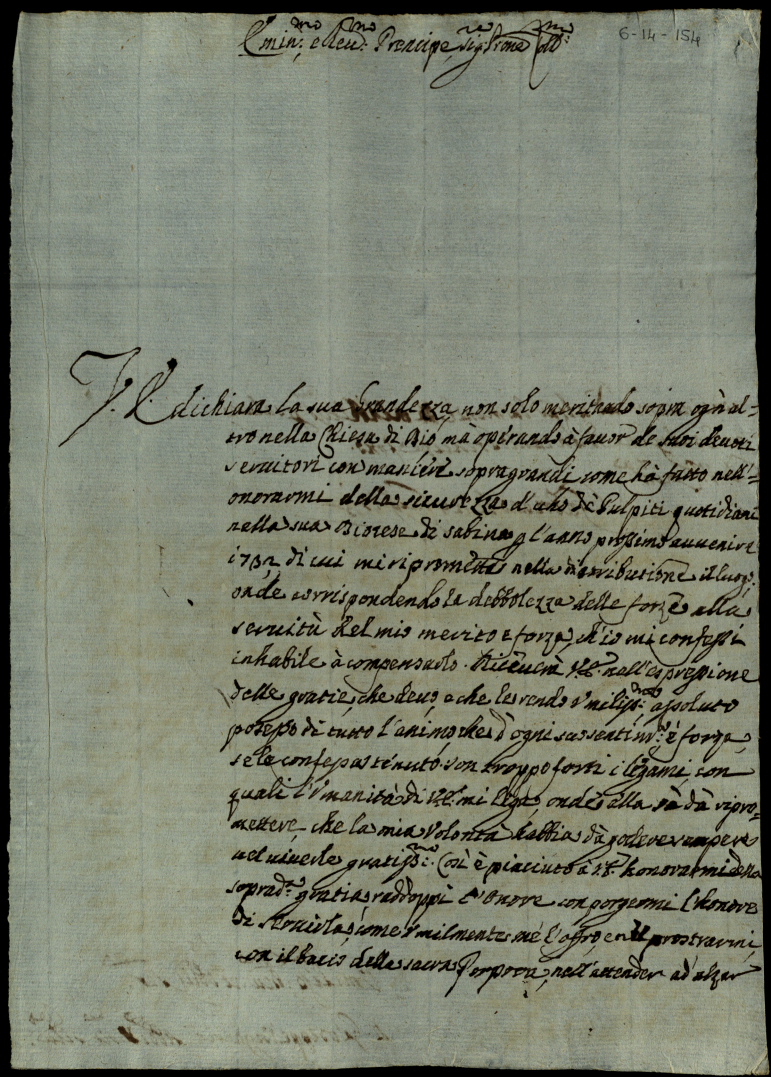 Emin.mo e Reu.mo Prencipe, sig.re Prone Col.mo
6-14-154
V. E. dichiara la sua Grandezza non solo meritando sopra ogn'al=
tro nella Chiesa di Dio, mà operando à fauor de suoi deuoti
seruitori con maniere sopragrandi come hà fatto nell'=
onorarmi della sicurezza d'uno dè Pulpiti quotidiani
nella sua Diocese di Sabina p l'anno prossimo auuenire
1732 di cui mi riprometto nella distributione il luogo.
onde corrispondendo la debbolezza delle forze alla
seruitù del mio merito è forza, ch'io mi confessi
inhabile à compensarlo. Riceuerà V.E. nell'espressione
delle gratie, che deuo, e che le rendo Vmiliss.mo assoluto
possesso di tutto l'animo che d'ogni è forza,
se le confessa tenuto. son troppo forti i legami, con
quali l'Vmanità di V.E. mi lega, onde alla sà dà ripro=
mettere, che la mia Volontà habbia dà godere rompere
nel viuerle gratiss.mo. Così è piaciuto à V.E. honorarmi della
soprad.a gratia, raddoppi l'Onore con porgermi l'honore
di seruirla, come Vmilmente me l'offro, e nel prostrarmi
con il bacio della sacra Porpora, nell'attender ad'alzar